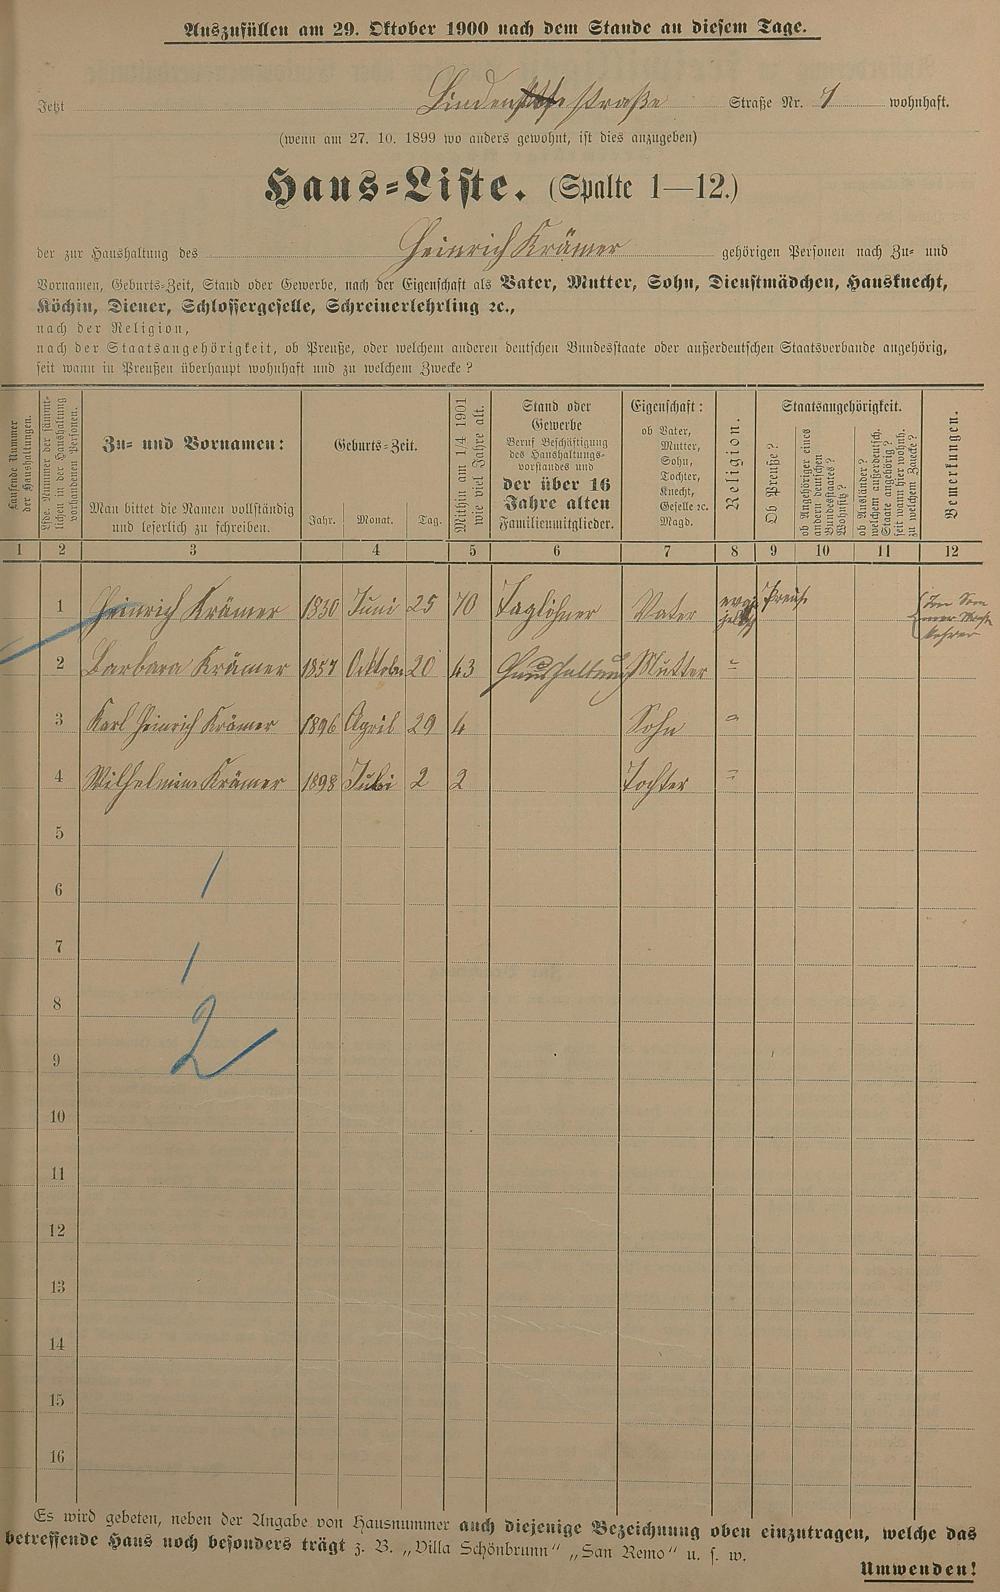 Auszufüllen am 29. Oktober 1900 nach dem Stande an diesem Tage.
Jetzt Lindenstraße Straße Nr. 7 wohnhaft.
(wenn am 27. 10. 1899 wo anders gewohnt, ist dies anzugeben)
Haus-Liste. (Spalte 1—12.)
der zur Haushaltung des Heinrich Krämer gehörigen Personen nach Zu- und
Vornamen, Geburts-Zeit, Stand oder Gewerbe, nach der Eigenschaft als Vater, Mutter, Sohn, Dienstmädchen, Hausknecht,
Köchin, Diener, Schlossergeselle, Schreinerlehrling ꝛc.,
nach der Religion,
nach der Staatsangehörigkeit, ob Preuße, oder welchem anderen deutschen Bundesstaate oder außerdeutschen Staatsverbande angehörig,
seit wann in Preußen überhaupt wohnhaft und zu welchem Zwecke?
Laufende Nummer
der Haushaltungen.
Lfde. Nummer der sämmt-
lichen in der Haushaltung
vorhandenen Personen.
Zu- und Vornamen:
Man bittet die Namen vollständig
und leserlich zu schreiben.
Geburts-Zeit.
Jahr. Monat. Tag.
Mithin am 1/4 1901
wie viel Jahre alt.
Stand oder
Gewerbe
Beruf Beschäftigung
des Haushaltungs-
vorstandes und
der über 16
Jahre alten
Familienmitglieder.
Eigenschaft:
ob Vater,
Mutter,
Sohn,
Tochter,
Knecht,
Geselle ꝛc.
Magd.
Religion.
Staatsangehörigkeit.
Ob Preuße?
ob Angehöriger eines
andern deutschen
Bundesstaates?
Wohnsitz?
ob Ausländer?
welchem außerdeutsch.
Staate angehörig?
seit wann hier wohnh.
zu welchem Zwecke?
Bemerkungen.
1 2 3 4 5 6 7 8 9 10 11 12
1 Heinrich Krämer 1830 Juni 25 70 Taglöhner Vater Preuße
2 Barbara Krämer 1857 Oktober 20 43 Haushaltung Mutter "
3 Karl Heinrich Krämer 1896 April 29 4 Sohn "
4 Wilhelmine Krämer 1898 Juli 2 2 Tochter "
5
6
7
8
2
9
10
11
12
13
14
15
16
Es wird gebeten, neben der Angabe von Hausnummer auch diejenige Bezeichnung oben einzutragen, welche das
betreffende Haus noch besonders trägt z. B. „Villa Schönbrunn" „San Remo" u. s. w.
Umwenden!